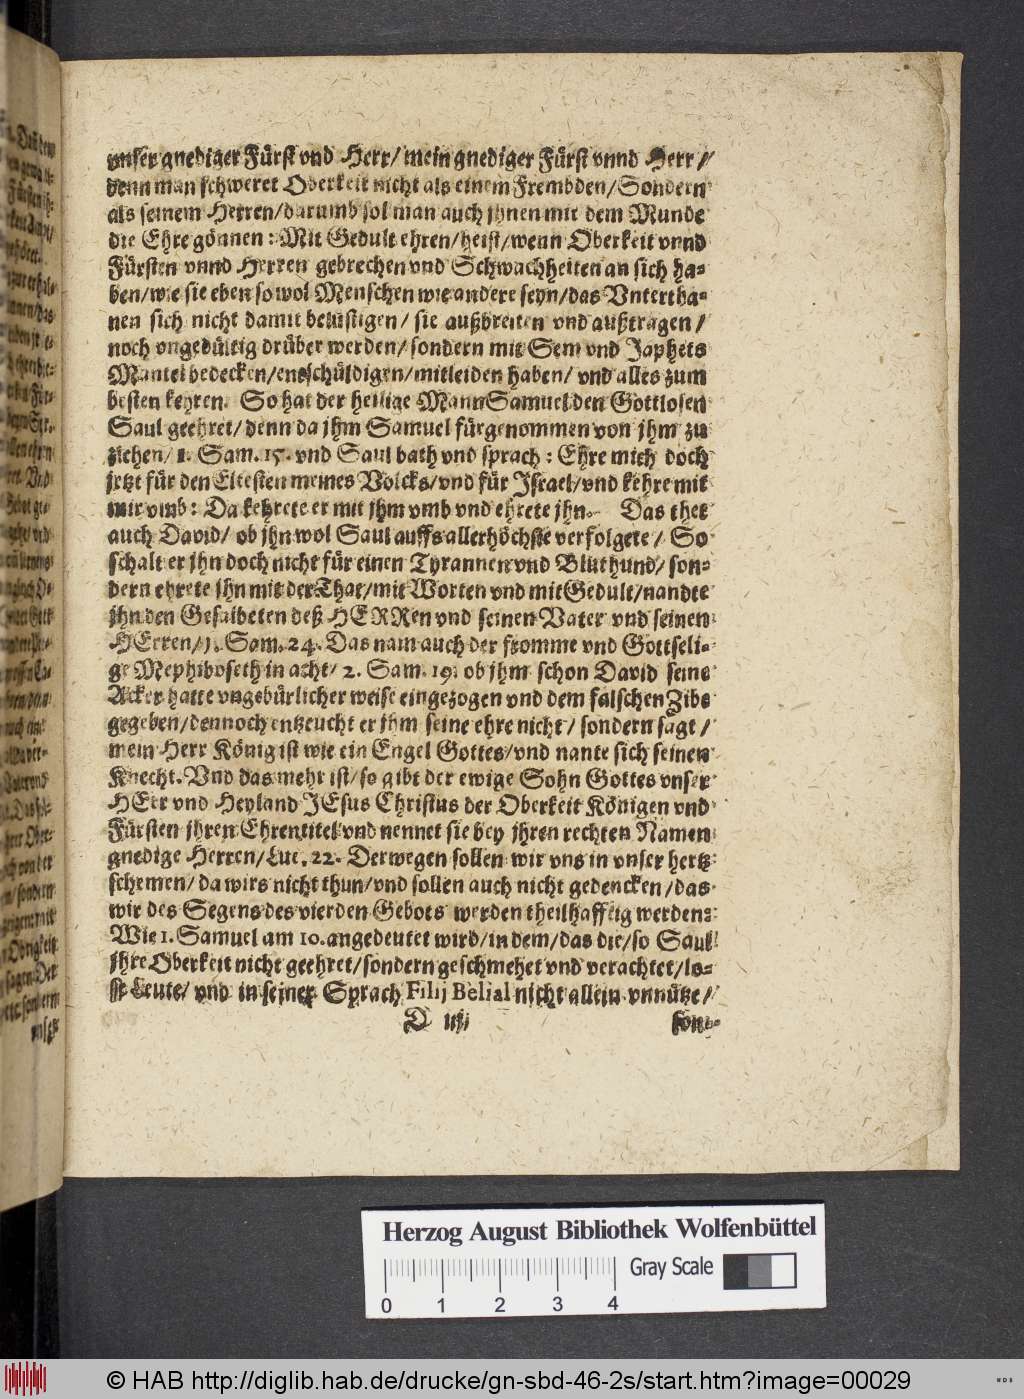 vnser gnediger Fürst vnd Herr/ mein gnediger Fürst vnnd Herr/
denn man schweret Oberkeit nicht als einem Frembden/ Sondern
als seinem Herren/ darumb sol man auch jhnen mit dem Munde
die Ehre gönnen: Mit Gedult ehren/ heist/ wenn Oberkeit vnnd
Fürsten vnnd Herren gebrechen vnd Schwachheiten an sich ha-
ben/ wie sie eben so wol Menschen wie andere seyn/ das Vntertha-
nen sich nicht damit belüstigen/ sie außbreiten vnd außtragen/
noch vngedültig drüber werden/ sondern mit Sem vnd Japhets
Mantel bedecken/ entschüldigen/ mitleiden haben/ vnd alles zum
besten keyren. So hat der heilige Mann Samuel den Gottlosen
Saul geehret/ denn da jhm Samuel fürgenommen von jhm zu
ziehen/ 1. Sam. 15. vnd Saul bath vnd sprach: Ehre mich doch
jetzt für den Eltesten meines Volcks/ vnd für Israel/ vnd kehre mit
mir vmb: Da kehrete er mit jhm vmb vnd ehrete jhn. Das thet
auch David/ ob jhn wol Saul auffs allerhöchste verfolgete/ So
schalt er jhn doch nicht für einen Tyrannen vnd Bluthund/ son-
dern ehrete jhn mit der That/ mit Worten vnd mit Gedult/ nandte
jhn den Gesalbeten deß HERRen vnd seinen Vater vnd seinen
HErren/ 1. Sam. 24. Das nam auch der fromme vnd Gottseli-
ge Mephiboseth in acht/ 2. Sam. 19. ob jhm schon David seine
Acker hatte vngebürlicher weise eingezogen vnd dem falschen Ziba
gegeben/ dennoch entzeucht er jhm seine ehre nicht/ sondern sagt/
mein Herr König ist wie ein Engel Gottes/ vnd nante sich seinen
Knecht. Vnd das mehr ist/ so gibt der ewige Sohn Gottes vnser
HErr vnd Heyland JEsus Christus der Oberkeit Königen vnd
Fürsten jhren Ehrentitel vnd nennet sie bey jhren rechten Namen
gnedige Herren/ Luc. 22. Derwegen sollen wir vns in vnser hertz
schemen/ da wirs nicht thun/ vnd sollen auch nicht gedencken/ das
wir des Segens des vierden Gebots werden theilhafftig werden:
Wie 1. Samuel am 10. angedeutet wird/ in dem/ das die/ so Saul
jhre Oberkeit nicht geehret/ sondern geschmehet vnd verachtet/ lo-
se Leute/ vnd in seiner Sprach Filij Belial nicht allein vnnütze/
D iij
son-
Herzog August Bibliothek Wolfenbüttel
Gray Scale
0 1 2 3 4
© HAB http://diglib.hab.de/drucke/gn-sbd-46-2s/start.htm?image=00029